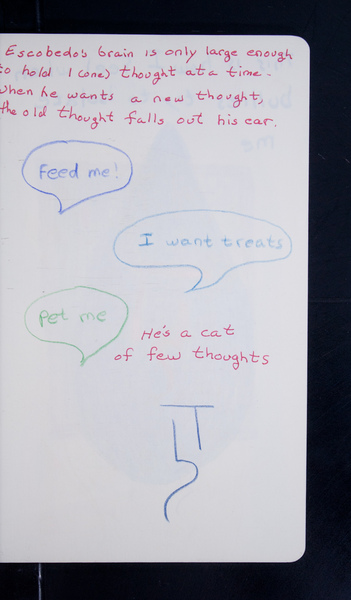 Escobedo's brain is only large enough
to hold 1 (one) thought at a time.
when he wants a new thought,
the old thought falls out his ear.
Feed me!
I want treats
Pet me
He's a cat
of few thoughts